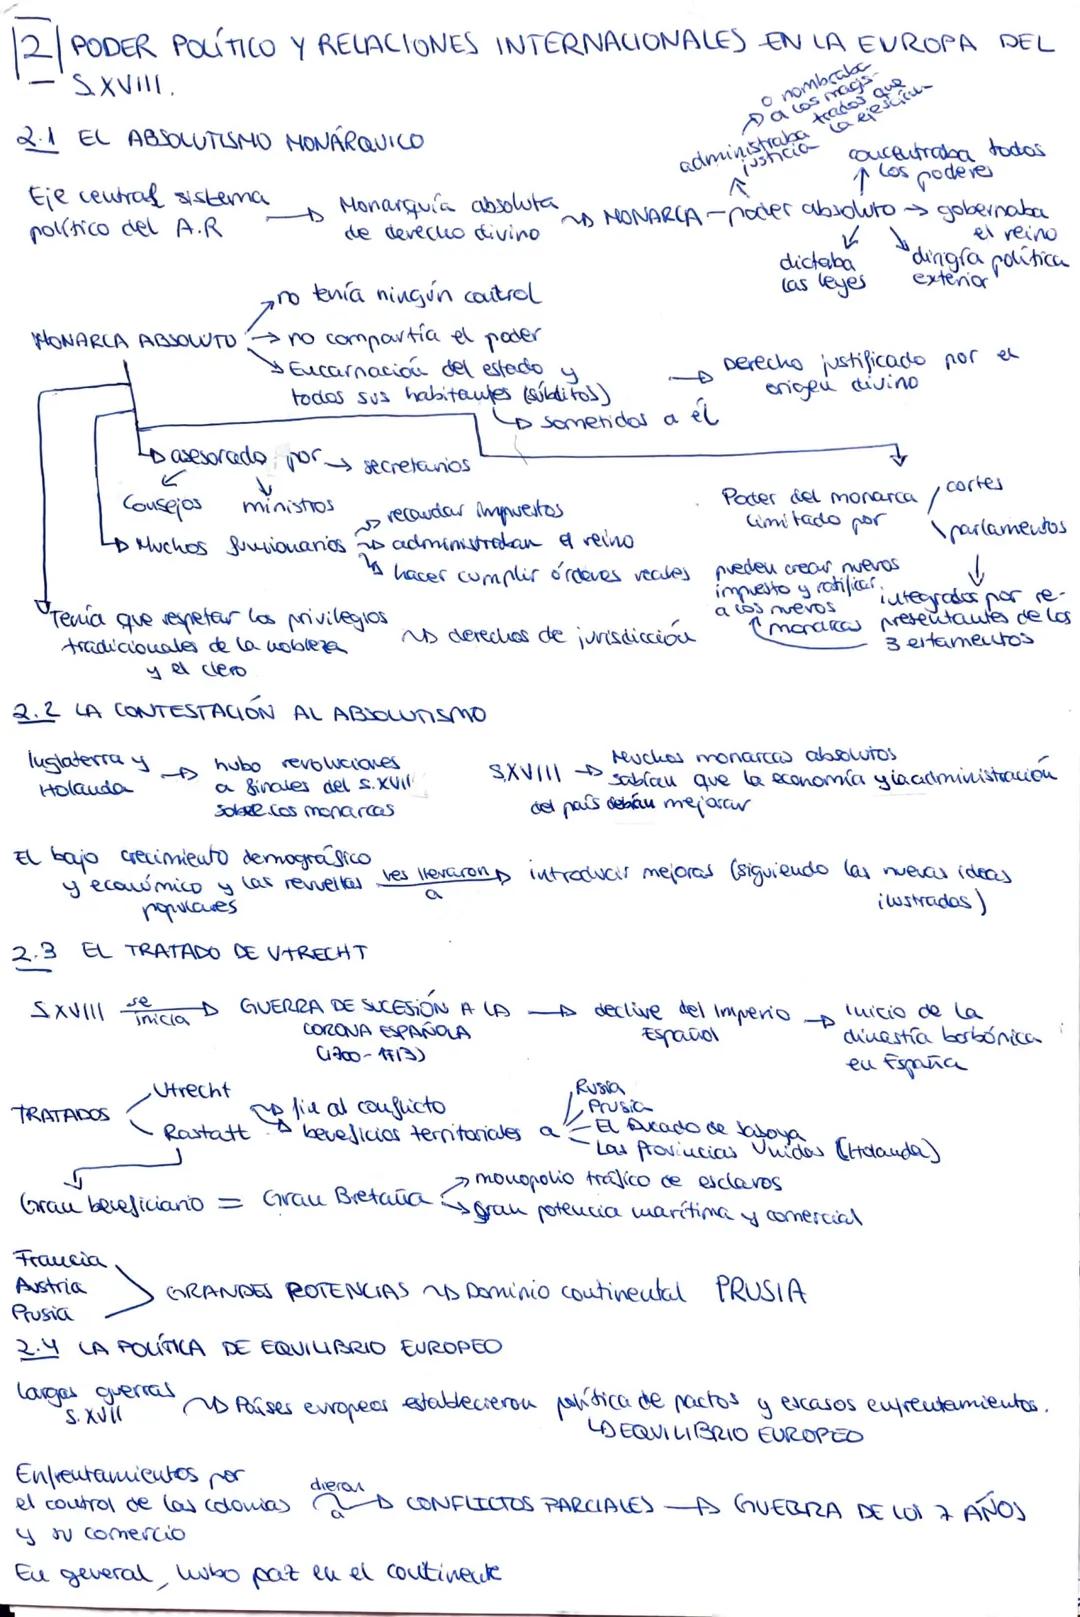 2 PODER POLÍTICO Y RELACIONES INTERNACIONALES EN LA EUROPA DEL
S.XVIII.
2.1 EL ABSOLUTISMO MONÁRQUICO
o nombraba
a los magis-
trados que
la ejercían
administraba
justicia
concentraba todos
los poderes
Eje central sistema
político del A.R
Monarquía absoluta
de derecho divino
MONARCA - poder absoluto → gobernaba
el reino
dictaba
las leyes
dirigía política
exterior
no tenía ningún control
MONARCA ABSOLUTO → no compartía el poder
Encarnación del estado y
todos sus habitantes (súbditos)
→ Derecho justificado por el
origen divino
sometidos a él
asesorado por → secretarios
Consejos ministros
Poder del monarca
limitado por
cortes
parlamentos
recaudar impuestos
Muchos funcionarios → administraban el reino
hacer cumplir órdenes reales
pueden crear nuevos
impuesto y ratificar
a los nuevos
monarcas
integrados por re-
presentantes de los
3 estamentos
Tenía que respetar los privilegios
tradicionales de la nobleza
y el clero
→ derechos de jurisdicción
2.2 LA CONTESTACIÓN AL ABSOLUTISMO
Inglaterra y
Holanda
→ hubo revoluciones
a finales del s.XVII
sobre los monarcas
S.XVIII → Muchos monarcas absolutos
sabían que la economía y la administración
del país debían mejorar
El bajo crecimiento demográfico
y económico y las revueltas
populares
les llevaron
a
→ introducir mejoras (siguiendo las nuevas ideas
ilustradas)
2.3 EL TRATADO DE UTRECHT
S.XVIII se
inicia
→ GUERRA DE SUCESIÓN A LA
CORONA ESPAÑOLA
(1700-1713)
→ declive del Imperio
Español
→ Inicio de la
dinastía borbónica
en España
TRATADOS
Utrecht
Rastatt
→ fin al conflicto
→ beneficios territoriales a
Rusia
Prusia
El Ducado de Saboya
Las Provincias Unidas (Holanda)
Gran beneficiario = Gran Bretaña
→ monopolio tráfico de esclavos
→ gran potencia marítima y comercial
Francia
Austria
Prusia
GRANDES POTENCIAS → Dominio continental PRUSIA
2.4 LA POLÍTICA DE EQUILIBRIO EUROPEO
Largas guerras
S. XVII
→ Países europeos establecieron política de pactos y escasos enfrentamientos.
→ EQUILIBRIO EUROPEO
Enfrentamientos por
el control de las colonias
y su comercio
dieron
a
→ CONFLICTOS PARCIALES → GUERRA DE LOS 7 AÑOS
En general, hubo paz en el continente